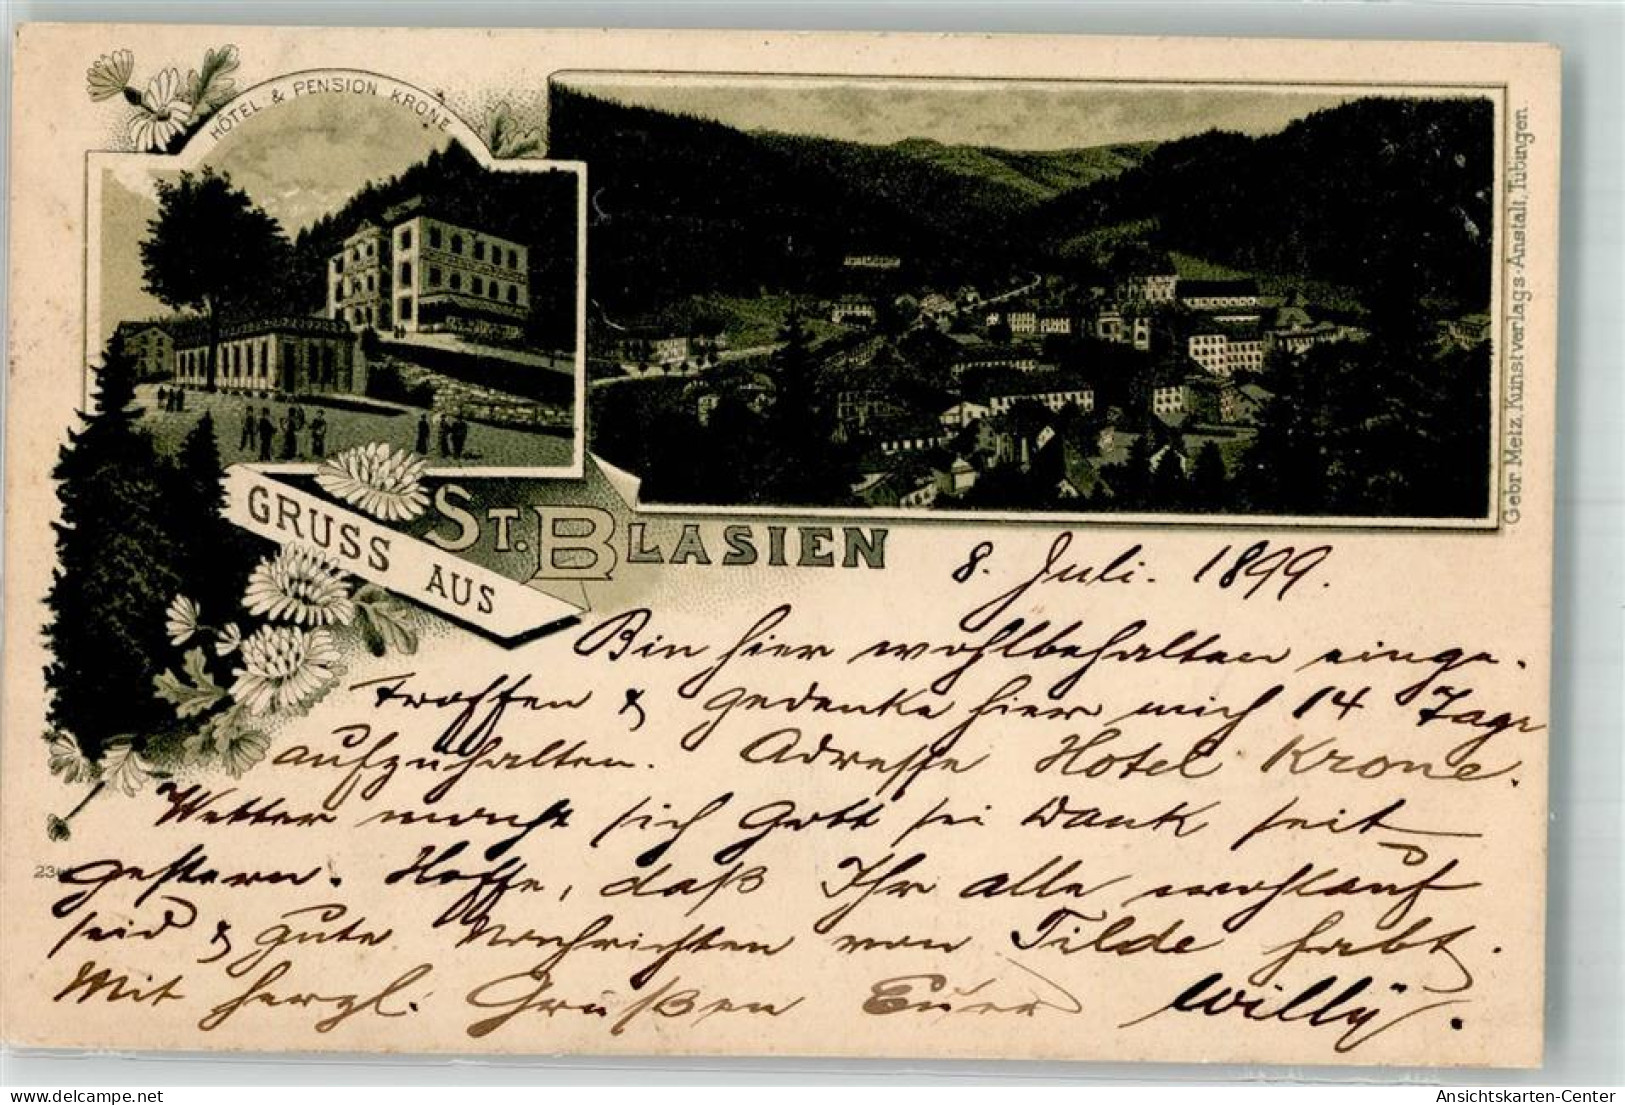 HÔTEL & PENSION KRONE
GRUSS AUS
ST. BLASIEN
Gebr. Metz, Kunstverlags-Anstalt, Tübingen.
8. Juli. 1899.
Bin hier wohlbehalten einge-
troffen & gedenke hier mich 14 Tage
aufzuhalten. Adresse Hotel Krone.
Wetter macht sich Gott sei Dank seit
gestern. Hoffe, daß Ihr alle wohlauf
seid & gute Nachrichten von Tilde habt.
Mit herzl. Grüßen Euer Willÿ.
delcampe.net
Ansichtskarten-Center